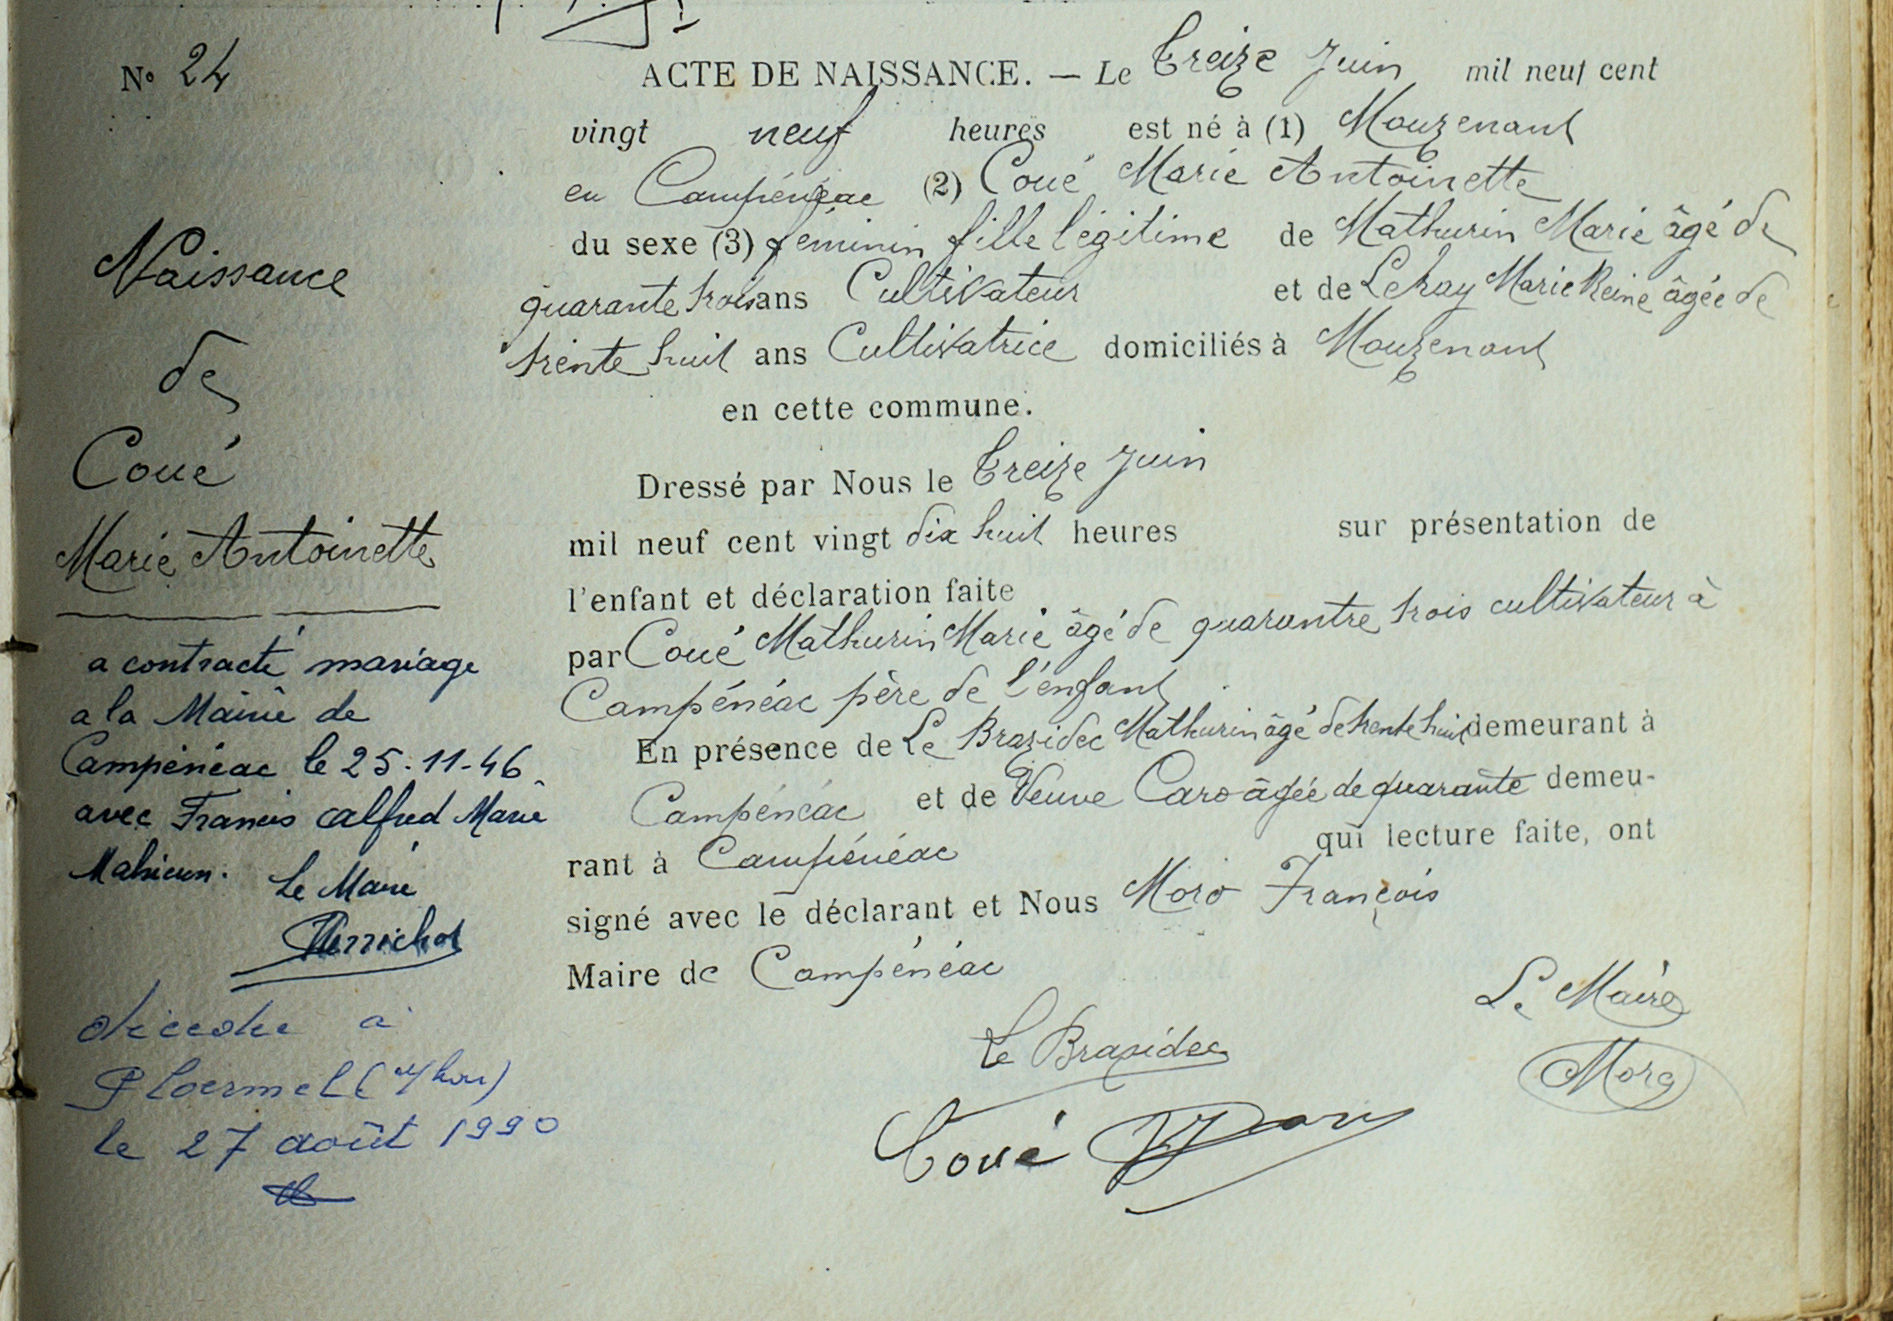 N° 24
ACTE DE NAISSANCE. — Le Treize Juin mil neuf cent
vingt neuf heures est né à (1) Mouzenant
en Campénéac (2) Coué Marie Antoinette
du sexe (3) féminin fille légitime de Mathurin Marie âgé de
quarante trois ans Cultivateur et de Lehay Marie Reine âgée de
trente huit ans Cultivatrice domiciliés à Mouzenant
en cette commune.
Dressé par Nous le Treize Juin
mil neuf cent vingt dix huit heures sur présentation de
l'enfant et déclaration faite
par Coué Mathurin Marie âgé de quarantre trois cultivateur à
Campénéac père de l'enfant
En présence de Le Brazidec Mathurin âgé de trente huit demeurant à
Campénéac et de Veuve Caro âgée de quarante demeu-
rant à Campénéac qui lecture faite, ont
signé avec le déclarant et Nous Moro François
Maire de Campénéac
Le Maire
Le Brazidec
Moro
Coué
Naissance
de
Coué
Marie Antoinette
a contracté mariage
a la Mairie de
Campénéac le 25-11-46
avec Francis Alfred Marie
Le Maire
décédée à
Ploermel (Morbihan)
le 27 août 1990